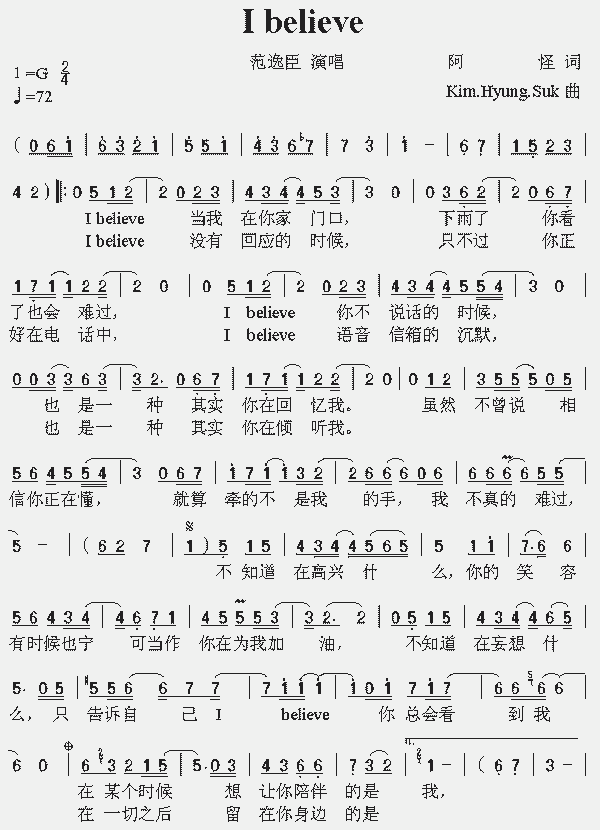 I believe
范逸臣 演唱 阿 怪 词
1=G 2/4
♩=72 Kim.Hyung.Suk 曲
( 0 6 1 | 6 3 2 1 | 5 5 1 | 4 3 6 7 | 7 3 | 1 - | 6 7 | 1 5 2 3 |
4 2 ) ‖: 0 5 1 2 | 2 0 2 3 | 4 3 4 4 5 3 | 3 0 | 0 3 6 2 | 2 0 6 7 |
I believe 当我 在你家 门口， 下雨了 你看
I believe 没有 回应的 时候， 只不过 你正
1 7 1 1 2 2 | 2 0 | 0 5 1 2 | 2 0 2 3 | 4 3 4 4 5 5 4 | 3 0 |
了也会 难过， I believe 你不 说话的 时候，
好在电 话中， I believe 语音 信箱的 沉默，
0 0 3 3 6 3 | 3 2. 0 6 7 | 1 7 1 1 2 2 | 2 0 | 0 1 2 | 3 5 5 5 0 5 |
也 是一 种 其实 你在回 忆我。 虽然 不曾说 相
也 是一 种 其实 你在倾 听我。
5 6 4 5 5 4 | 3 0 6 7 | 1 7 1 1 3 2 | 2 6 6 6 0 6 | 6 6 6 6 5 5 |
信你正在懂， 就算 牵的不 是我 的手， 我 不真的 难过，
5 - | ( 6 2 7 | 1 ) 5 1 5 | 4 3 4 4 5 6 5 | 5 1 1 | 7. 6 6 |
不 知道 在高兴 什 么，你的 笑 容
5 6 4 3 4 | 4 6 7 1 | 4 5 5 3 4 | 3 2. 2 | 0 5 1 5 | 4 3 4 4 6 5 |
有时候也宁 可当作 你在为我加 油， 不知道 在妄想 什
5. 0 5 | #5 5 6 6 7 7 | 7 1 1 1 | 1 0 1 7 1 7 | 6 6 6 6 6 |
么，只 告诉自 己 I believe 你 总会看 到我
6 0 | 6 3 2 1 5 | 5. 0 3 | 4 3 6 6 | 7 3 2 | 1 - | ( 6 7 | 3 - |
在 某个时候 想 让你陪伴 的是 我，
在 一切之后 留 在你身边 的是